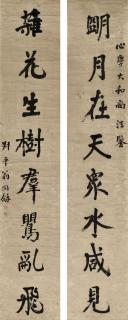 心學大和尚法鑒
眀月在天眾水咸見
雜花生樹羣鶯亂飛
叔平翁同龢